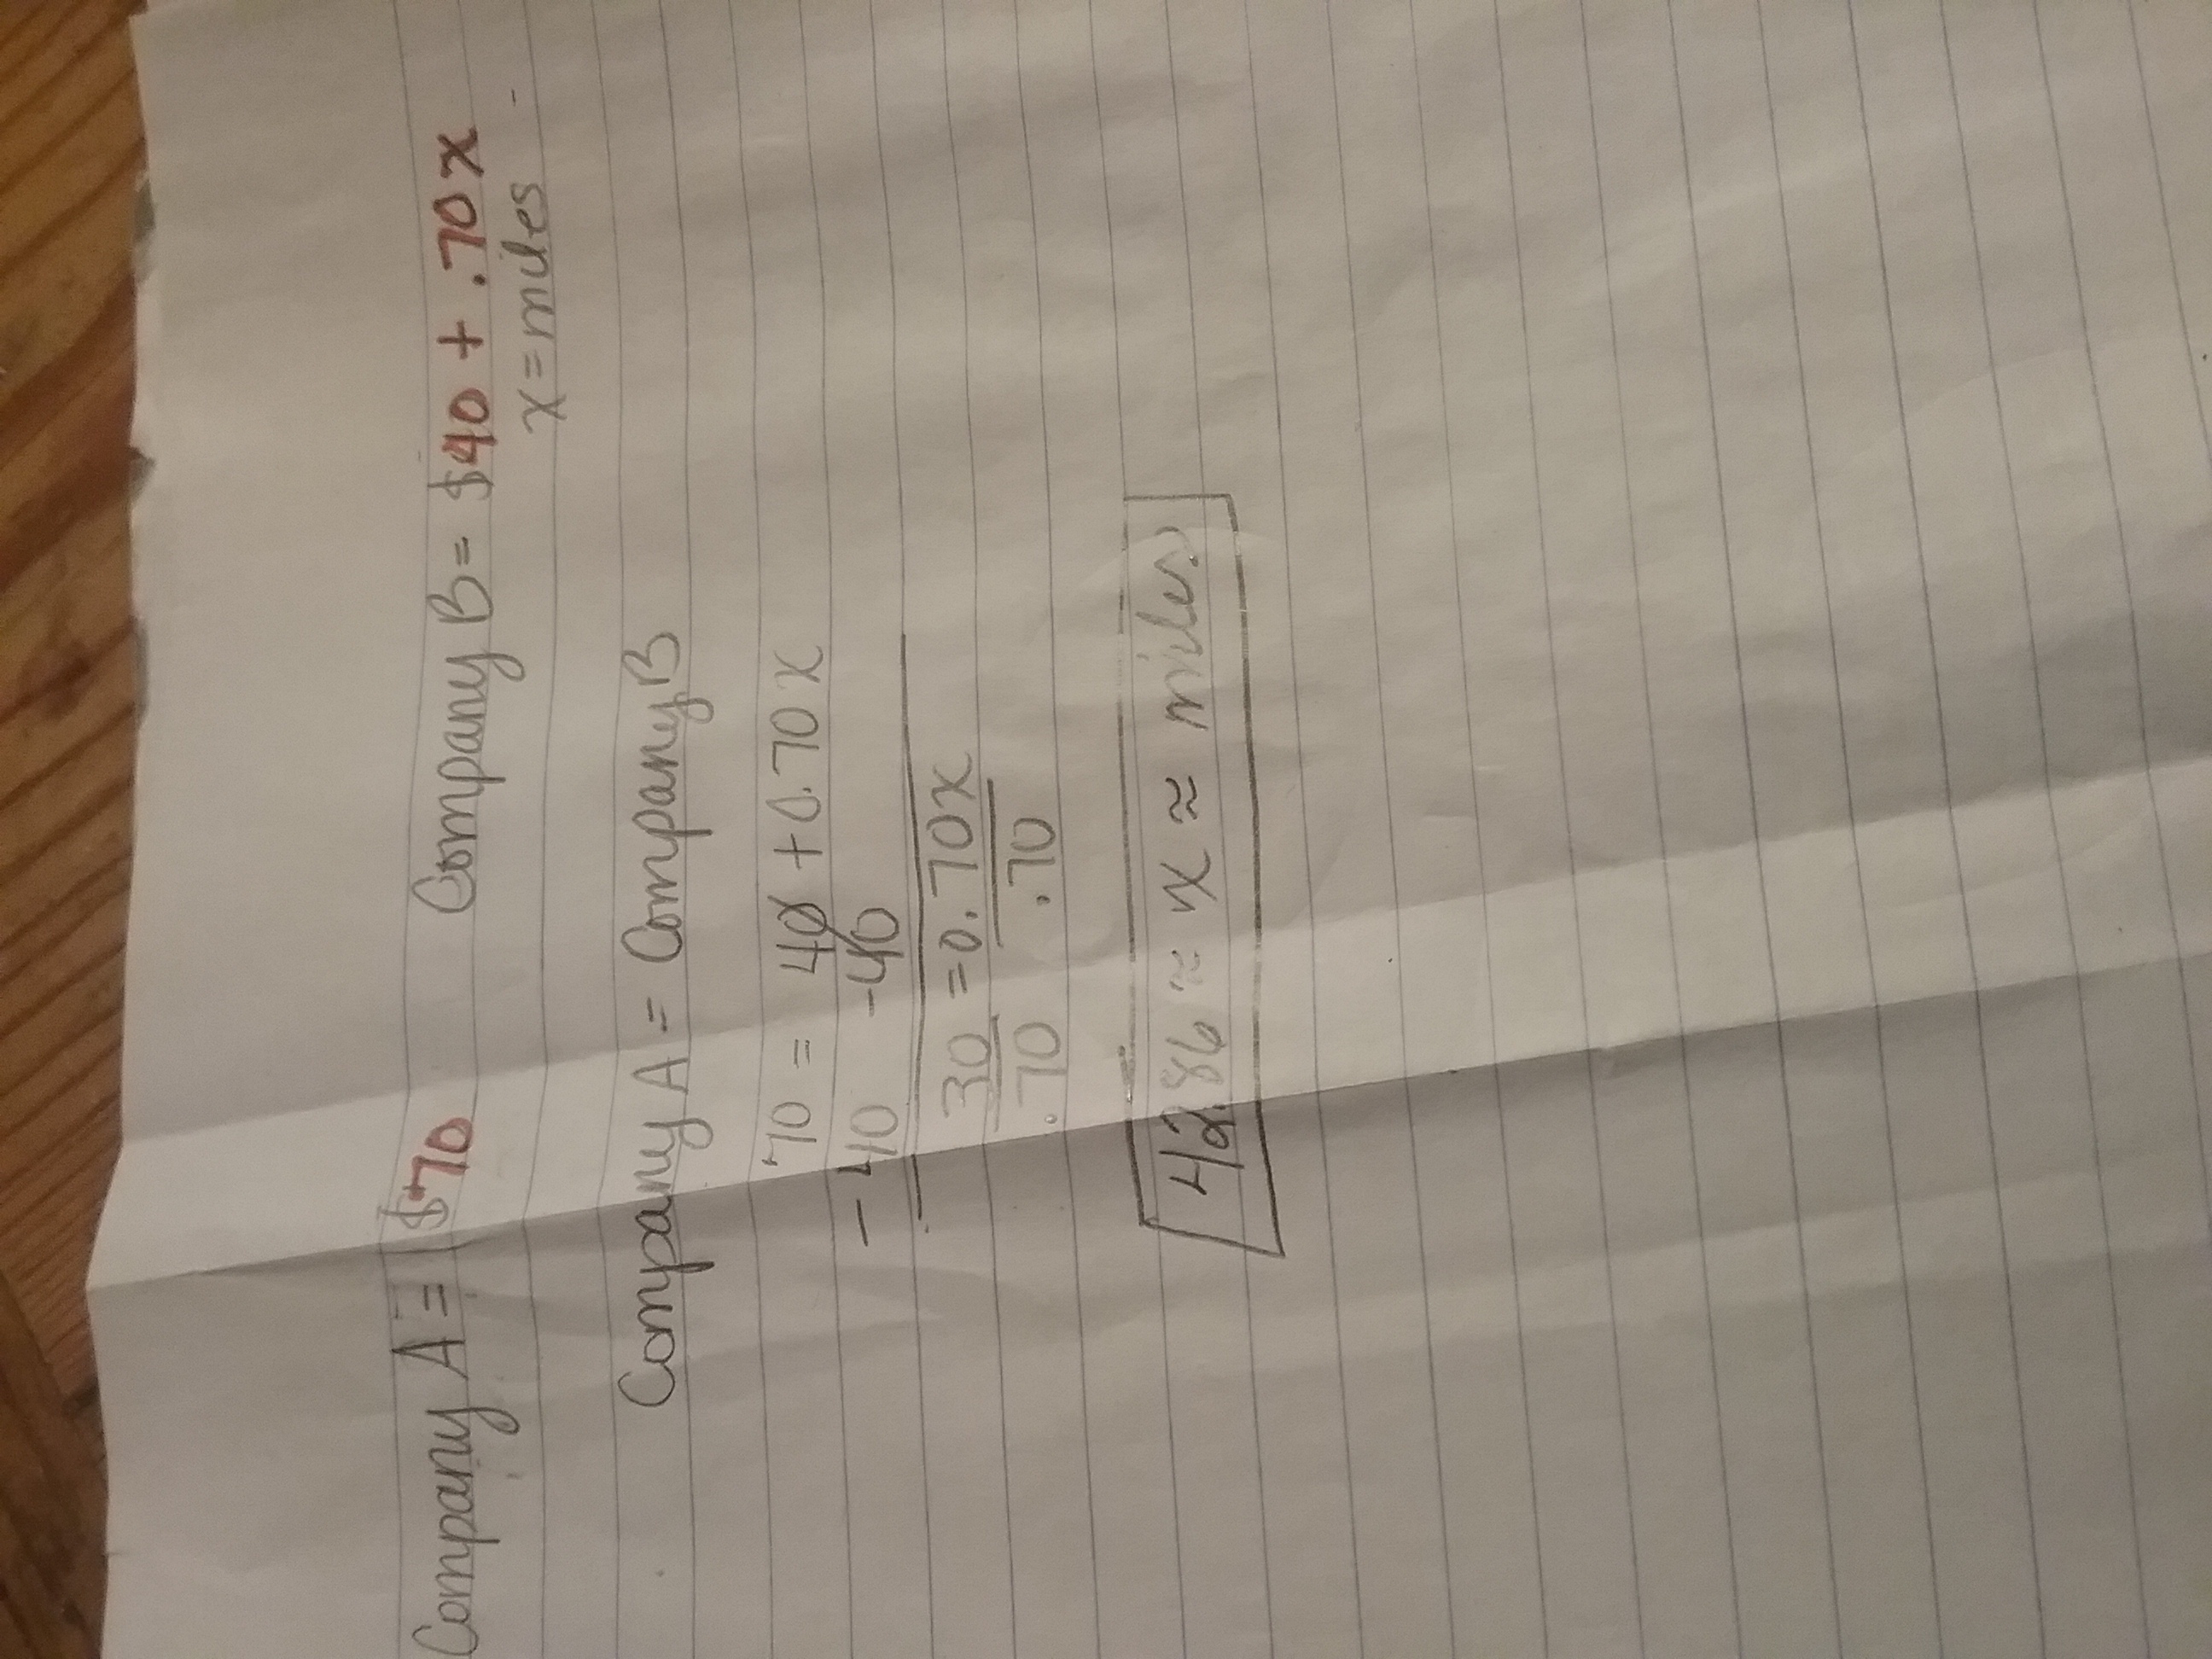 Company A = $70 Company B = $40 + .70x
x = miles
Company A = Company B
70 = 40 + 0.70x
-40 -40
30 = 0.70x
.70 .70
42.86 ≈ x ≈ miles